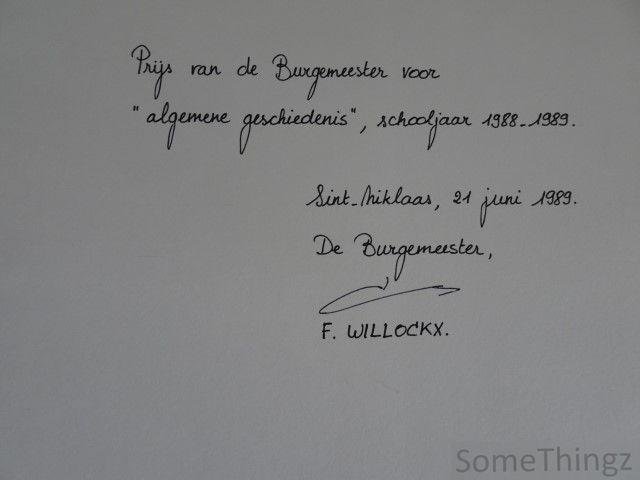 Prijs van de Burgemeester voor
"algemene geschiedenis", schooljaar 1988-1989.
Sint-Niklaas, 21 juni 1989.
De Burgemeester,
F. WILLOCKX.
SomeThingz